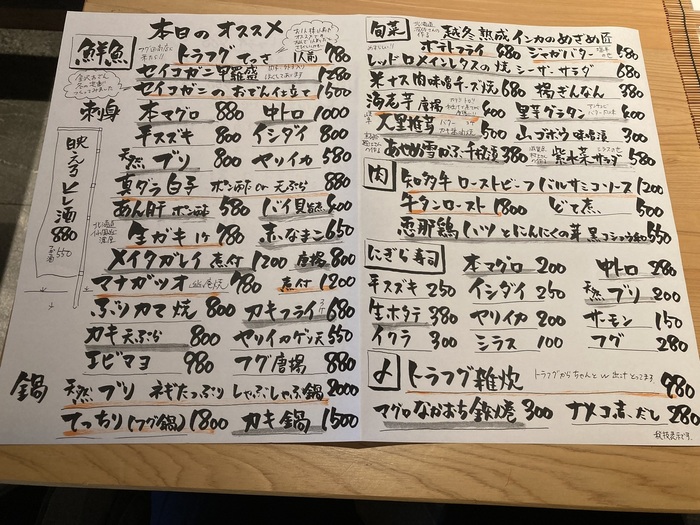 本日のオススメ
鮮魚
トラフグ てっさ 1人前 980
セイコガニ甲羅盛 1280
セイコガニのおでん仕立て 1500
刺身
本マグロ 880 中トロ 1000
平スズキ 800 イシダイ 800
天然ブリ 800 ヤリイカ 580
真ダラ白子 ポン酢 or 天ぷら 880
あん肝 ポン酢 580 バイ貝旨煮 600
生ガキ 1ケ 780 赤なまこ 650
メイタガレイ 煮付 1200 唐揚 800
マナガツオ 幽庵焼 980 煮付 1200
ぶりカマ焼 800 カキフライ 680
カキ天ぷら 800 ヤリイカゲソ天 550
エビマヨ 980 フグ唐揚 880
鍋
天然ブリ ネギたっぷりしゃぶしゃぶ鍋 2000
てっちり(フグ鍋) 1800 カキ鍋 1500
映えるヒレ酒 880
旬菜
越冬熟成 インカのめざめ 匠
ポテトフライ 680 ジャガバター 580
レッドロメインレタスの焼シーザーサラダ 680
米ナス肉味噌チーズ焼 680 揚ぎんなん 380
海老芋唐揚 600 里芋グラタン 600
大黒椎茸 500 山ゴボウ味噌漬 300
あやめ雪かぶ千枚漬 380 紫水菜サラダ 580
肉
知多牛ローストビーフバルサミコソース 1200
牛タンロースト 1800 どて煮 500
恵那鶏ハツとにんにくの芽黒コショウ和 550
にぎり寿司
本マグロ 200 中トロ 280
平スズキ 250 イシダイ 250 天然ブリ 200
生ホタテ 380 ヤリイカ 200 サーモン 150
イクラ 300 シラス 100 フグ 280
〆
トラフグ雑炊 トラフグからちゃんと出汁とってます 980
マグロなかおち鉄火巻 300 ナメコ赤だし 280
税抜表示です。